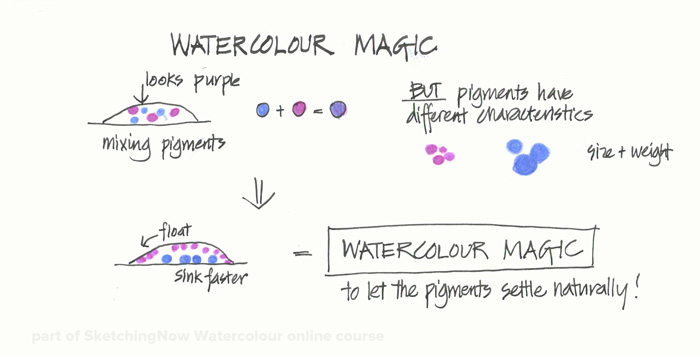 WATERCOLOUR MAGIC
looks purple
mixing pigments
+ =
BUT pigments have
different characteristics
size + weight
float
sink faster
= WATERCOLOUR MAGIC
to let the pigments settle naturally!
part of SketchingNow Watercolour online course